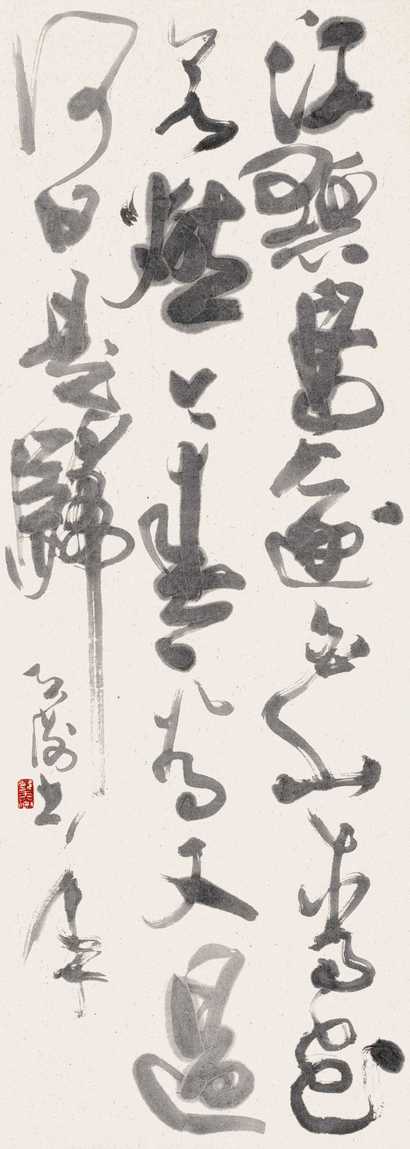 江碧鳥逾白山青花
欲燃今春看又過
何日是歸年